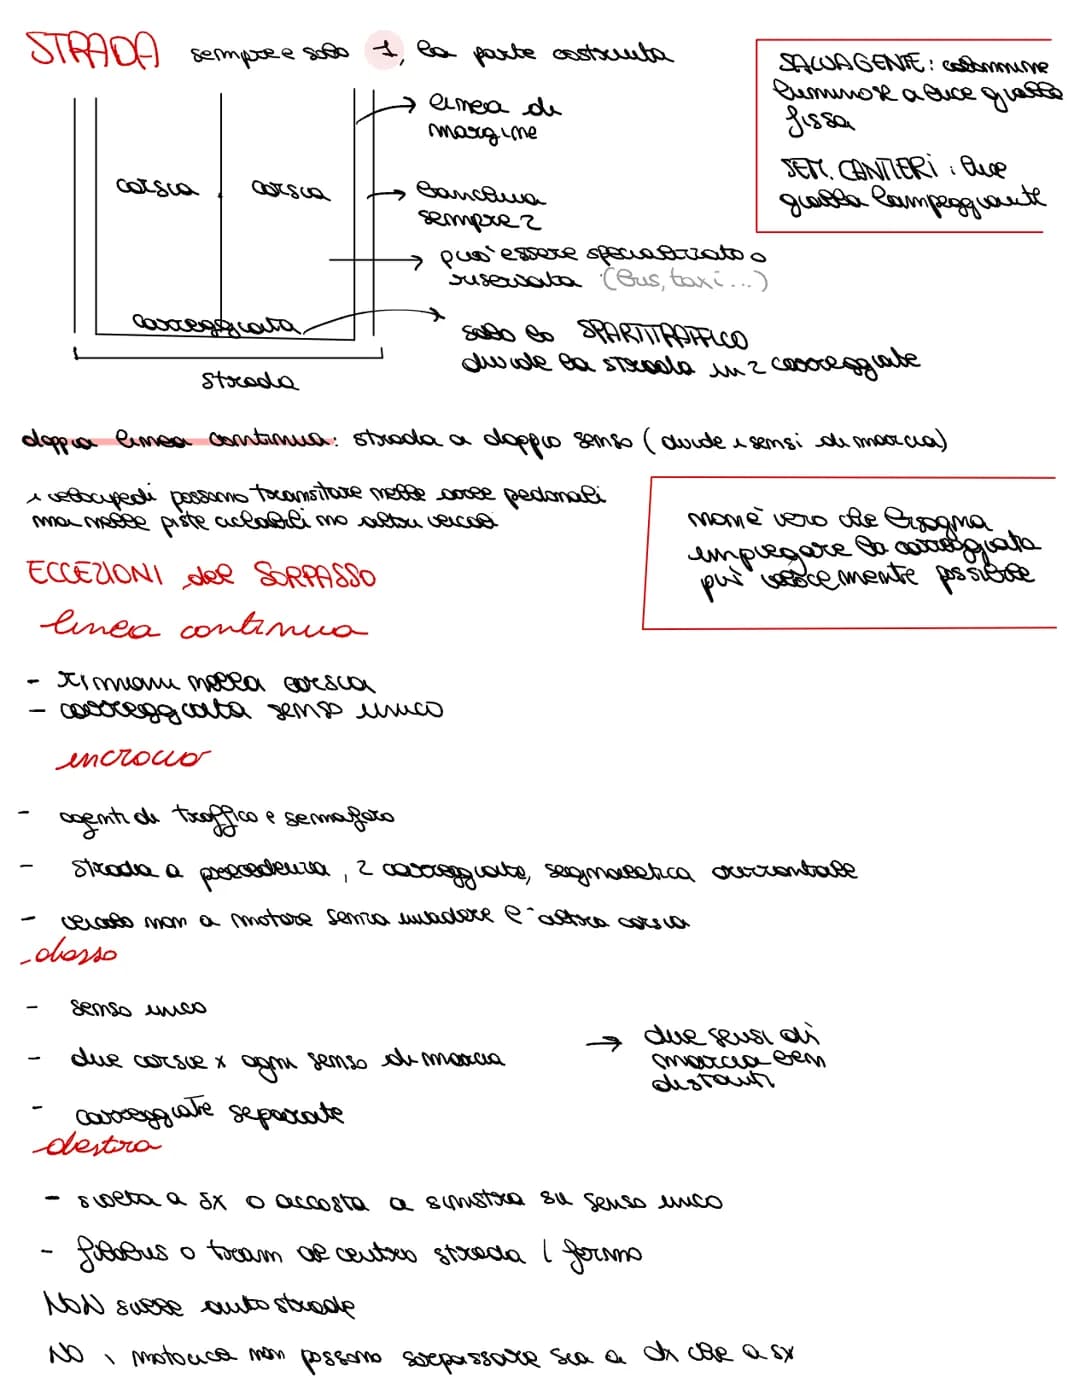 STRADA sempre e solo 1, la parte costruita
SALVAGENTE: colonnine
luminose a luce gialla
fissa
SEM. CANTIERI: luce
gialla lampeggiante
linea di
margine
corsia
corsia
banchina
sempre 2
può essere specializzato o
riservata (bus, taxi...)
carreggiata
solo lo SPARTITRAFFICO
divide la strada in 2 carreggiate
strada
doppia linea continua: strada a doppio senso (divide i sensi di marcia)
i velocipedi possono transitare nelle aree pedonali
ma nelle piste ciclabili no altri veicoli
non è vero che bisogna
impiegare la carreggiata
più velocemente possibile
ECCEZIONI del SORPASSO
linea continua
- rimani nella corsia
- carreggiata senso unico
incrocio
- agenti di traffico e semaforo
- strada a precedenza, 2 carreggiate, segnaletica orizzontale
- veicolo non a motore senza invadere l'altra corsia
dosso
- senso unico
- due corsie x ogni senso di marcia
→ due sensi di
marcia ben
distanti
- carreggiate separate
destra
- svolta a sx o accosta a sinistra su senso unico
- filobus o tram al centro strada / fermo
NON sulle autostrade
NO i motocicli non possono sorpassare sia a dx che a sx